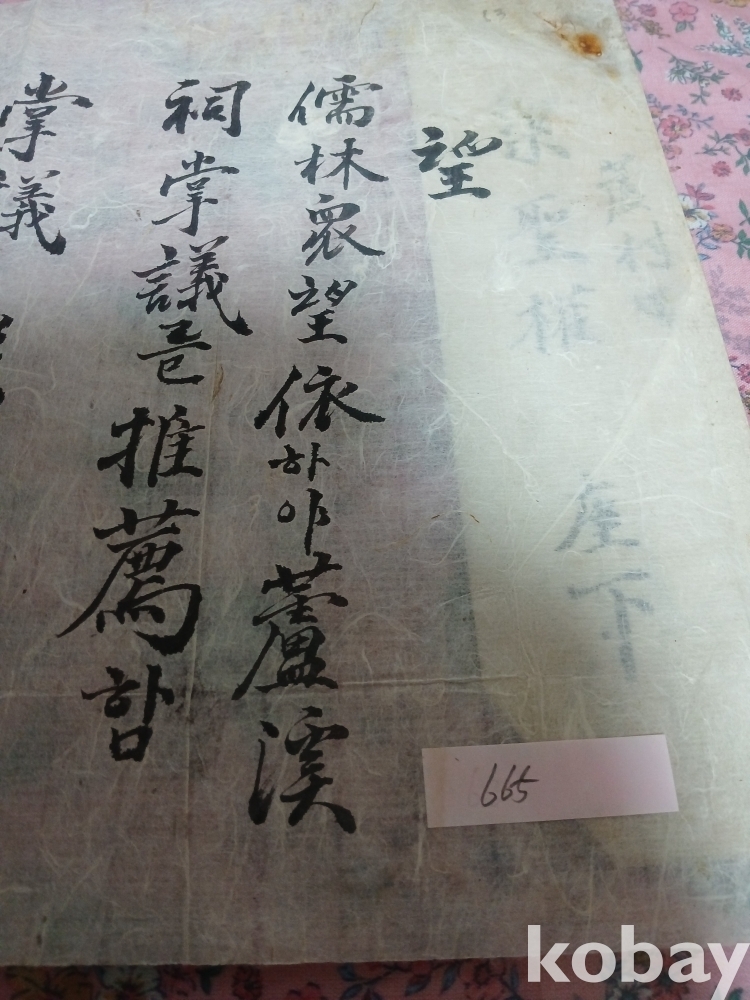 望
儒林衆望依하야蘆溪
祠掌議로推薦함
掌議
座下
665
kobay